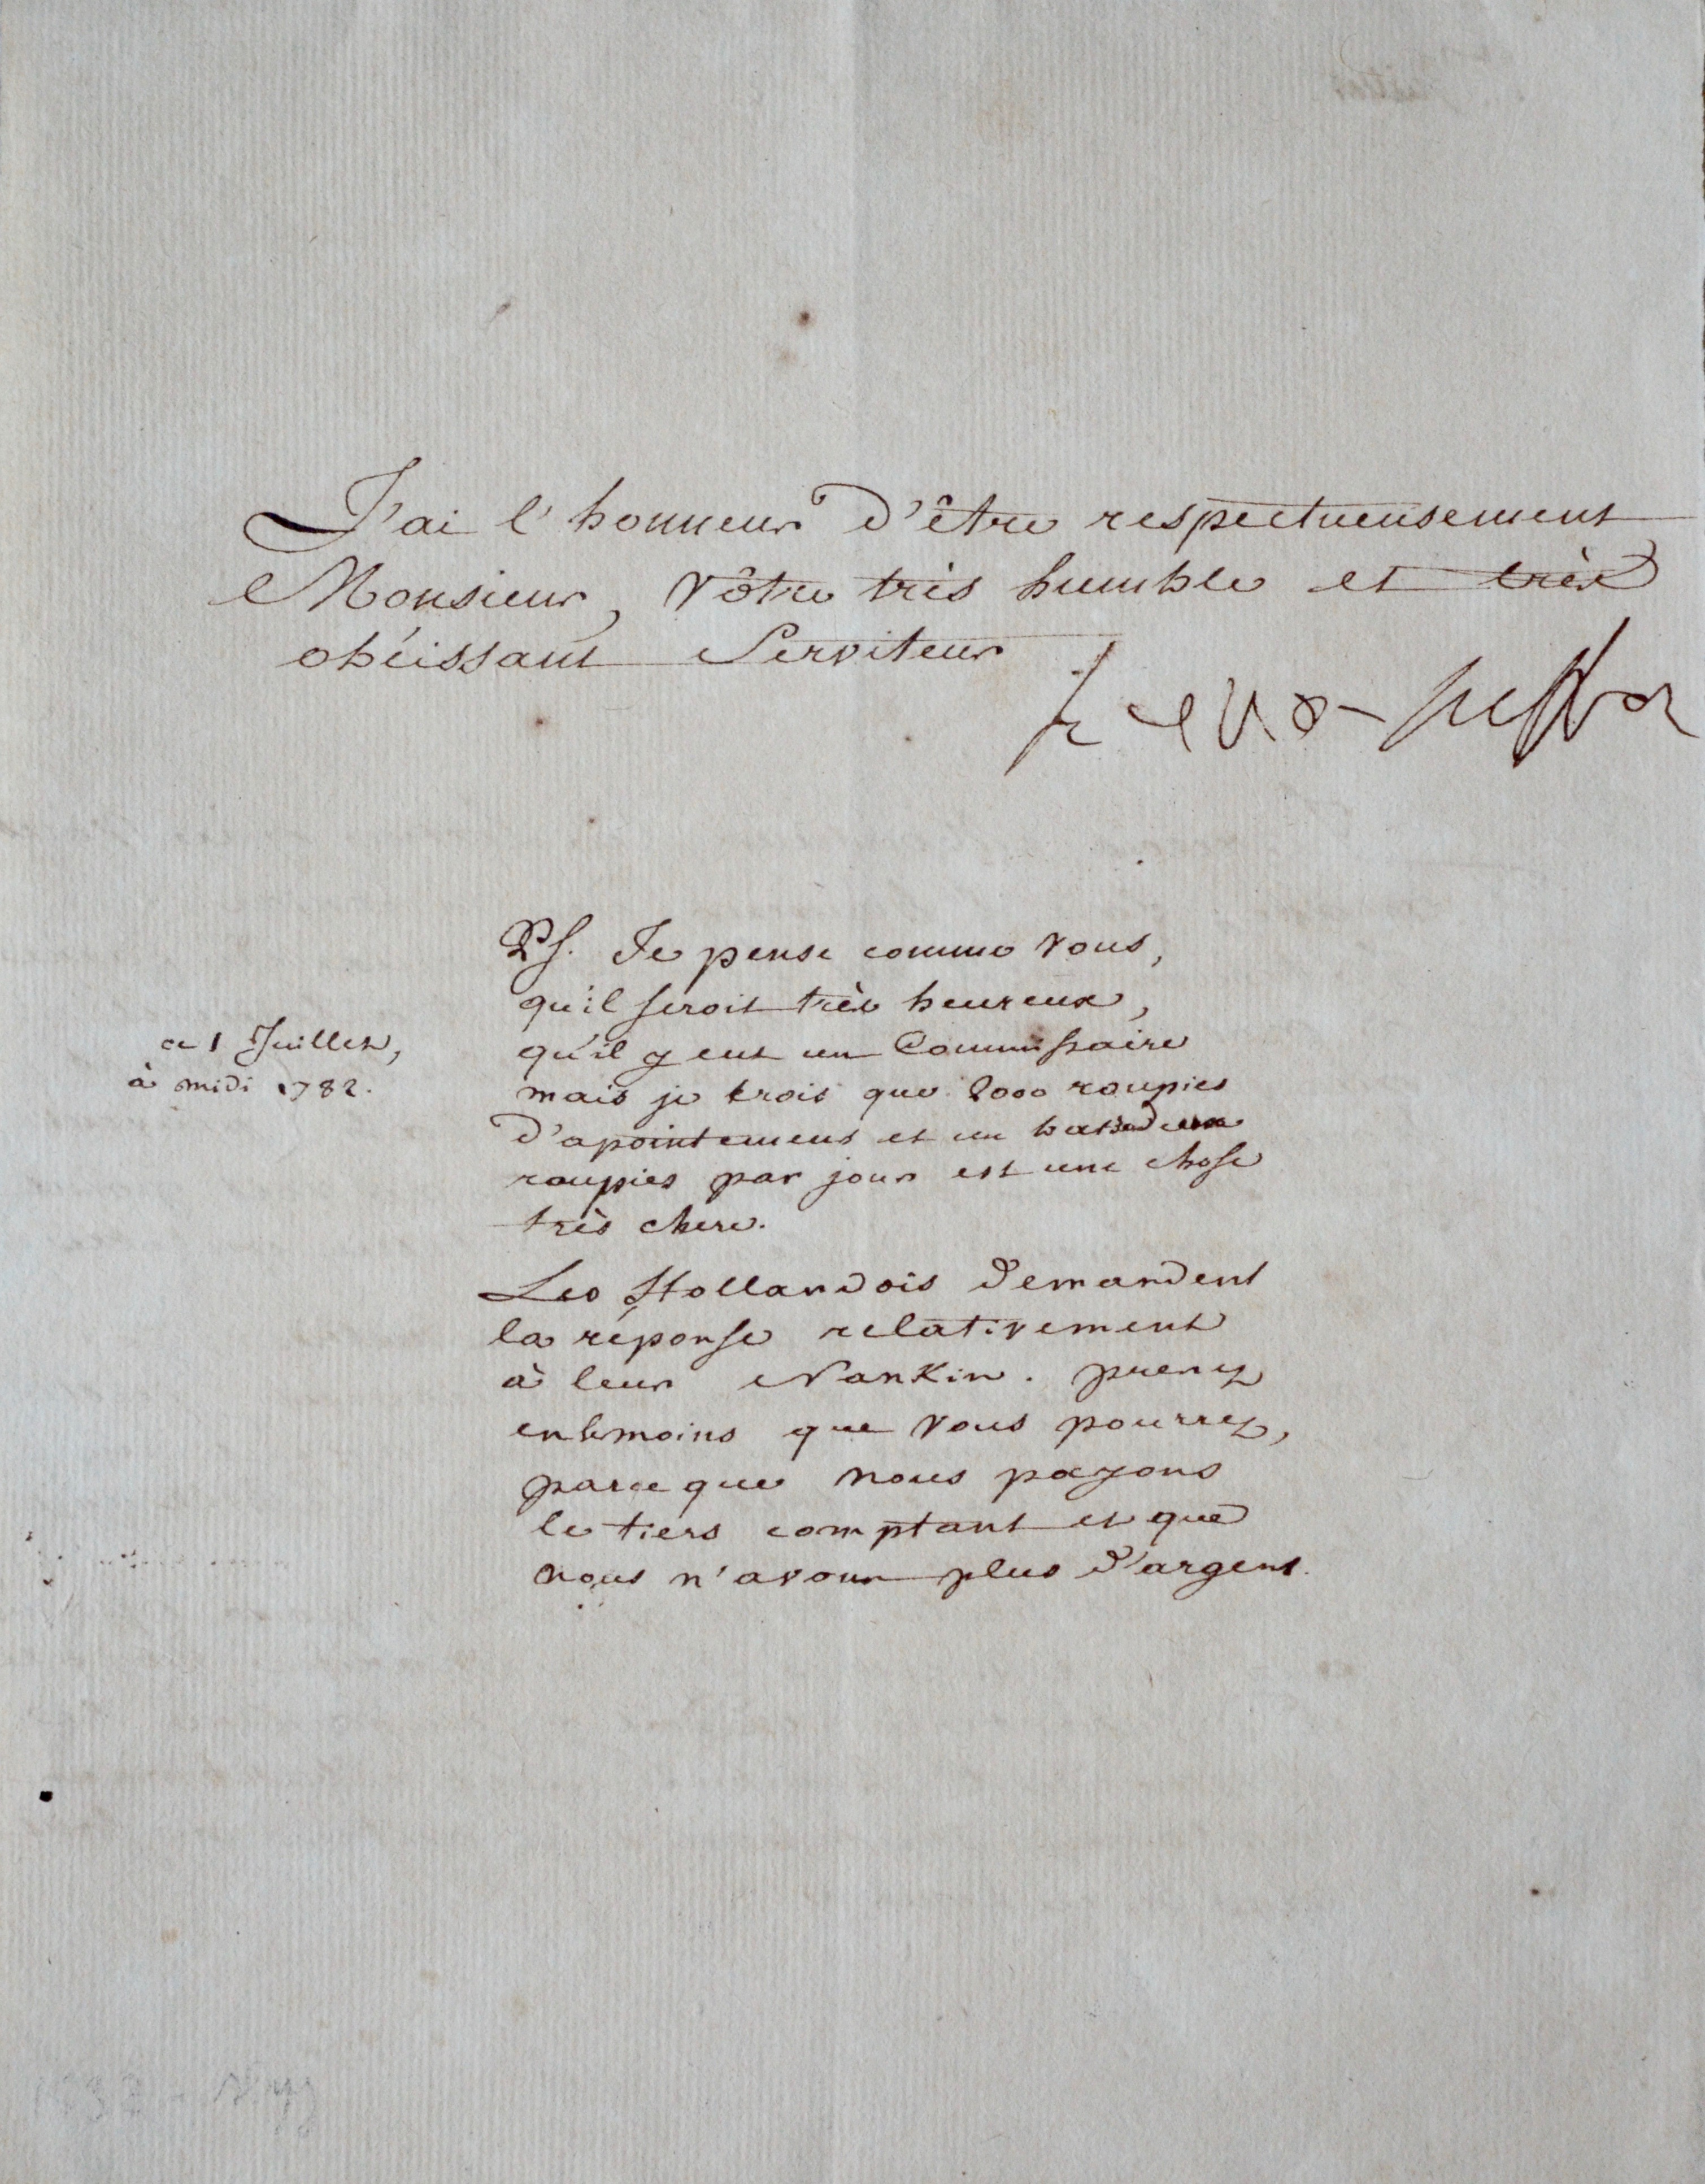 J'ai l'honneur d'être respectueusement
Monsieur, vôtre très humble et très
obéissant Serviteur
PS. Je pense comme vous,
qu'il seroit très heureux,
qu'il y eut un Commissaire
ce 1 Juillet,
à midi 1782.
mais je crois que 2000 roupies
d'apointemens et un
roupies par jour est une chose
très chere.
Les Hollandois demandent
la réponse relativement
à leur Nankin. prenez
en le moins que vous pourrez,
parce que nous payons
le tiers comptant et que
nous n'avons plus d'argent.